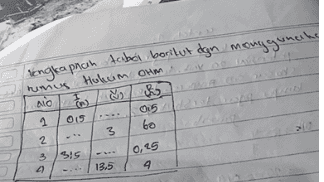 lengkapilah tabel berikut dgn menggunaka
rumus Hukum OHM
NO I V R
(A) (V) (Ω)
1 0,5 .... 0,5
2 ... 3 60
3 3,5 .... 0,25
4 .... 13,5 4